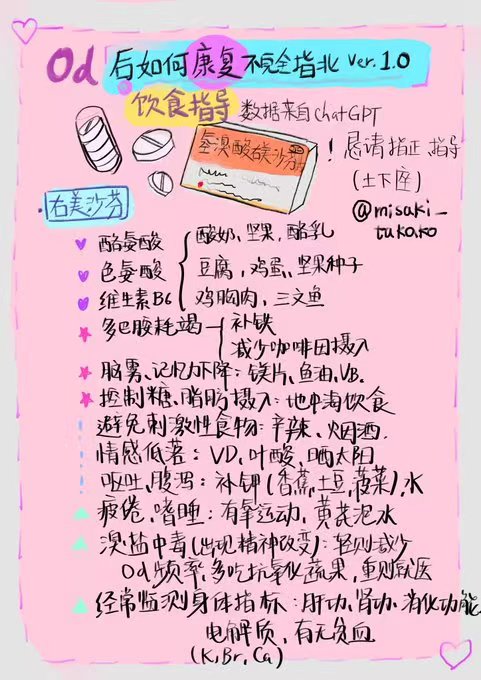 Od 后如何康复不完全指北 Ver.1.0
饮食指导 数据来自chatGPT
氢溴酸右美沙芬
！恳请指正 指导
(土下座)
@misaki_
takoro
·右美沙芬
酪氨酸
色氨酸
维生素B6
酸奶、坚果，酪乳
豆腐，鸡蛋、坚果种子
鸡胸肉，三文鱼
多巴胺耗竭 补铁
减少咖啡因摄入
脑雾、记忆力下降：铁片、鱼油、VB.
控制糖、脂肪摄入：地中海饮食
避免刺激性食物：辛辣、烟酒.
情感低落：VD、叶酸、晒太阳
呕吐、腹泻：补钾(香蕉,土豆,菠菜),水
疲倦、嗜睡：有氧运动、黄芪泡水
溴盐中毒(出现精神改变)：轻则减少
Od频率，多吃抗氧化蔬果，重则就医
经常监测身体指标：肝功、肾功、消化功能
电解质，有无贫血
(K,Br,Ca)